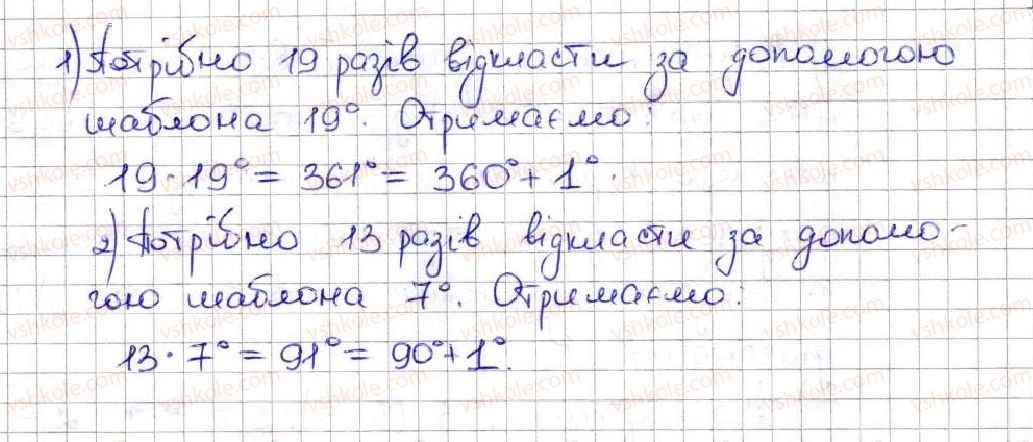 1) Потрібно 19 разів відкласти за допомогою
шаблона 19°. Отримаємо:
19 · 19° = 361° = 360° + 1°.
2) Потрібно 13 разів відкласти за допомо-
гою шаблона 7°. Отримаємо:
13 · 7° = 91° = 90° + 1°.